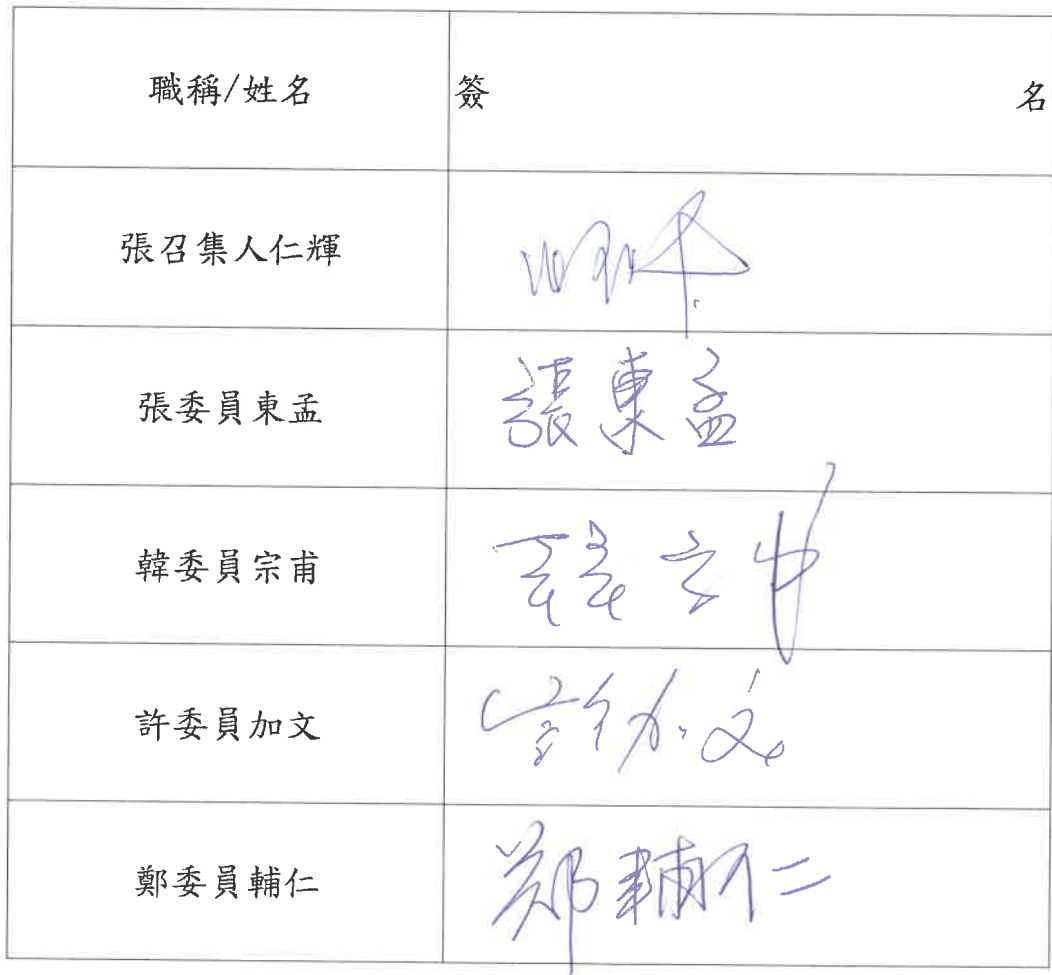 職稱/姓名 簽 名
張召集人仁輝
張委員東孟 張東孟
韓委員宗甫
許委員加文 許加文
鄭委員輔仁 鄭輔仁